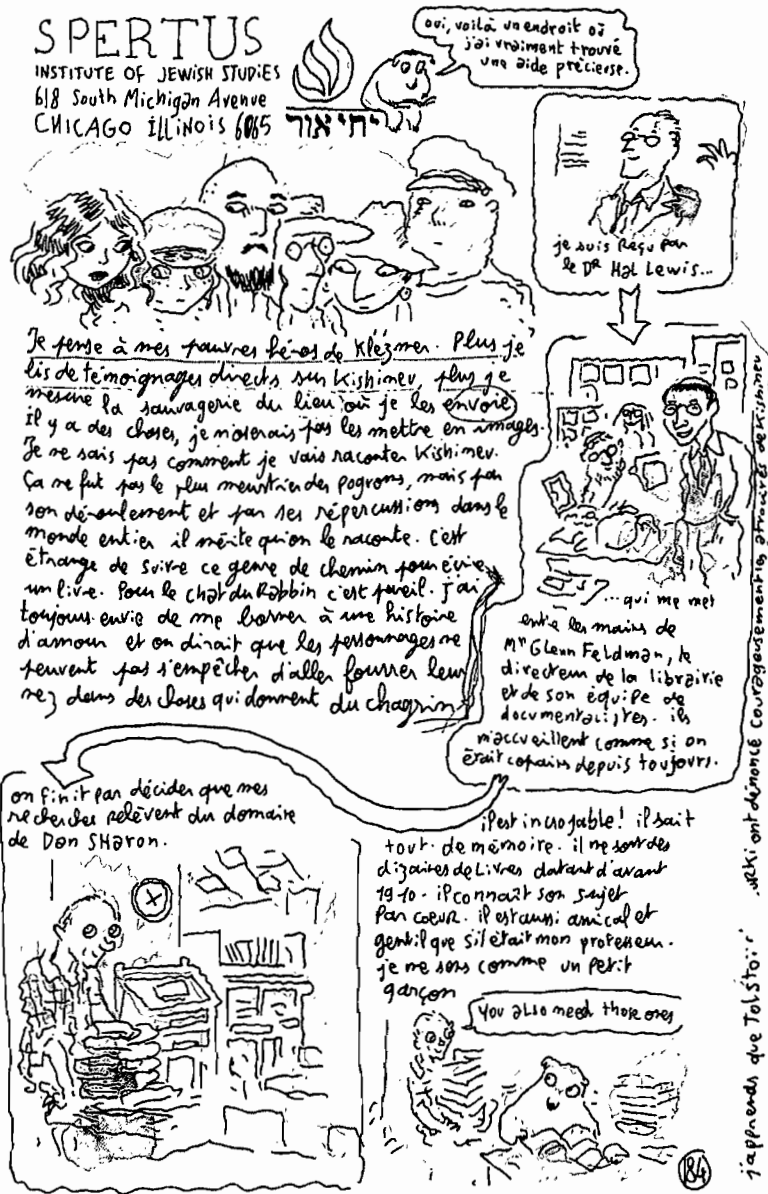 SPERTUS
INSTITUTE OF JEWISH STUDIES
618 South Michigan Avenue
CHICAGO ILLINOIS 6065
יהי אור
oui, voilà un endroit où
j'ai vraiment trouvé
une aide précieuse.
je suis Reçu par
le DR Hal Lewis...
Je pense à mes pauvres héros de Klézmer. Plus je
lis de témoignages directs sur Kishinev, plus je
mesure la sauvagerie du lieu où je les envoie
il y a des choses, je n'oserais pas les mettre en images.
Je ne sais pas comment je vais raconter Kishinev.
Ça ne fut pas le plus meurtrier des pogroms, mais par
son déroulement et par ses répercussions dans le
monde entier il mérite qu'on le raconte. C'est
étrange de suivre ce genre de chemin pour écrire
un livre. Pour le chat du Rabbin c'est pareil. J'ai
toujours envie de me borner à une histoire
d'amour et on dirait que les personnages ne
peuvent pas s'empêcher d'aller fourrer leur
nez dans des choses qui donnent du chagrin.
...qui me met
entre les mains de
Mr Glenn Feldman, le
directeur de la librairie
et de son équipe de
documentalistes. ils
m'accueillent comme si on
était copains depuis toujours.
on finit par décider que mes
recherches relèvent du domaine
de Dan SHaron.
il est incroyable! il sait
tout de mémoire. il me sort des
dizaines de livres datant d'avant
1910. il connaît son sujet
par coeur. il est aussi amical et
gentil que s'il était mon professeur.
je me sens comme un petit
garçon
You also need those ones
j'apprends que Tolstoï
ont dénoncé courageusement les atrocités de Kishinev
84